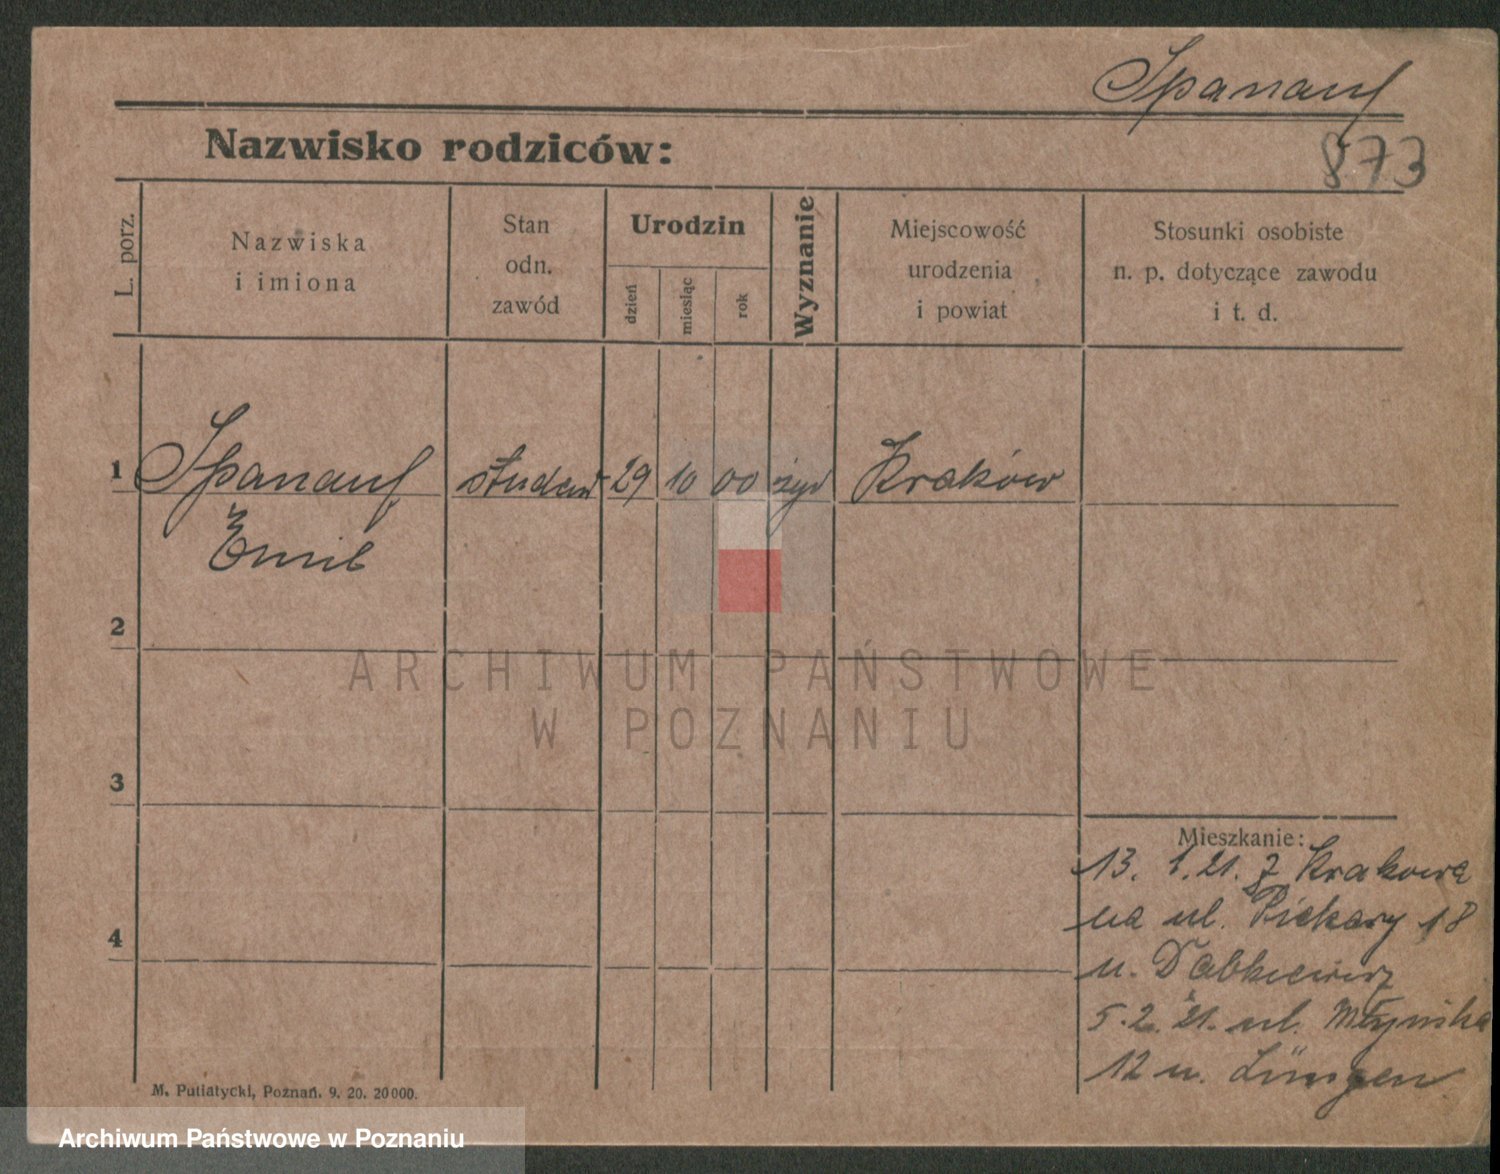 Spanauf
Nazwisko rodziców:
873
L. porz.
Nazwiska
i imiona
Stan
odn.
zawód
Urodzin
dzień
miesiąc
rok
Wyznanie
Miejscowość
urodzenia
i powiat
Stosunki osobiste
n. p. dotyczące zawodu
i t. d.
1 Spanauf student 29 10 00 żyd Kraków
Emil
2
ARCHIWUM PAŃSTWOWE
W POZNANIU
3
Mieszkanie:
13. 1. 21. z Krakowa
na ul. Piekary 18
4
u.
5. 2. 21. ul. Młyńska
12 u.
M. Putiatycki, Poznań. 9. 20. 20000.
Archiwum Państwowe w Poznaniu